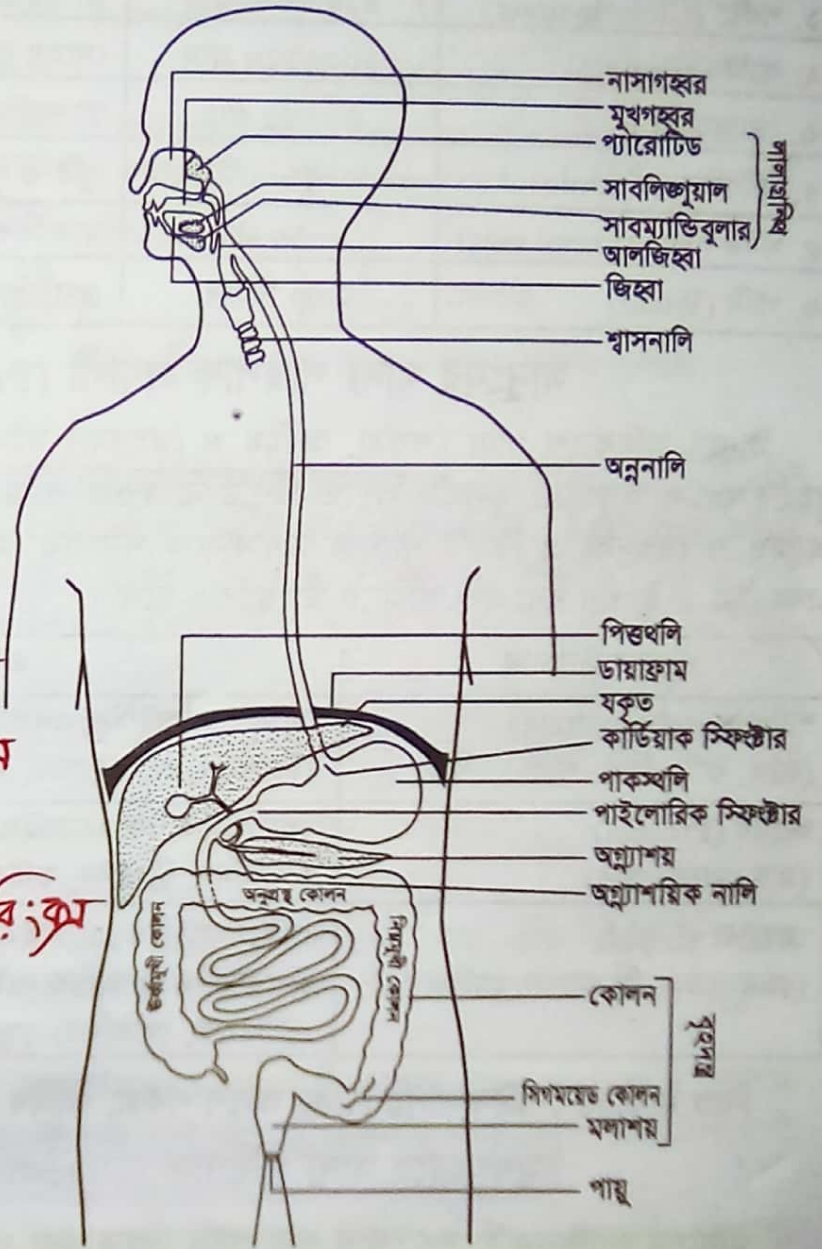 নাসাগহ্বর
মুখগহ্বর
প্যারোটিড
সাবলিঙ্গুয়াল
সাবম্যান্ডিবুলার
লালাগ্রন্থি
আলজিহ্বা
জিহ্বা
শ্বাসনালি
অন্ননালি
পিত্তথলি
ডায়াফ্রাম
যকৃত
কার্ডিয়াক স্ফিংক্টার
পাকস্থলি
পাইলোরিক স্ফিংক্টার
অগ্ন্যাশয়
অগ্ন্যাশয়িক নালি
অনুপ্রস্থ কোলন
ঊর্ধ্বমুখী কোলন
নিম্নমুখী কোলন
কোলন
সিগময়েড কোলন
মলাশয়
বৃহদন্ত্র
পায়ু